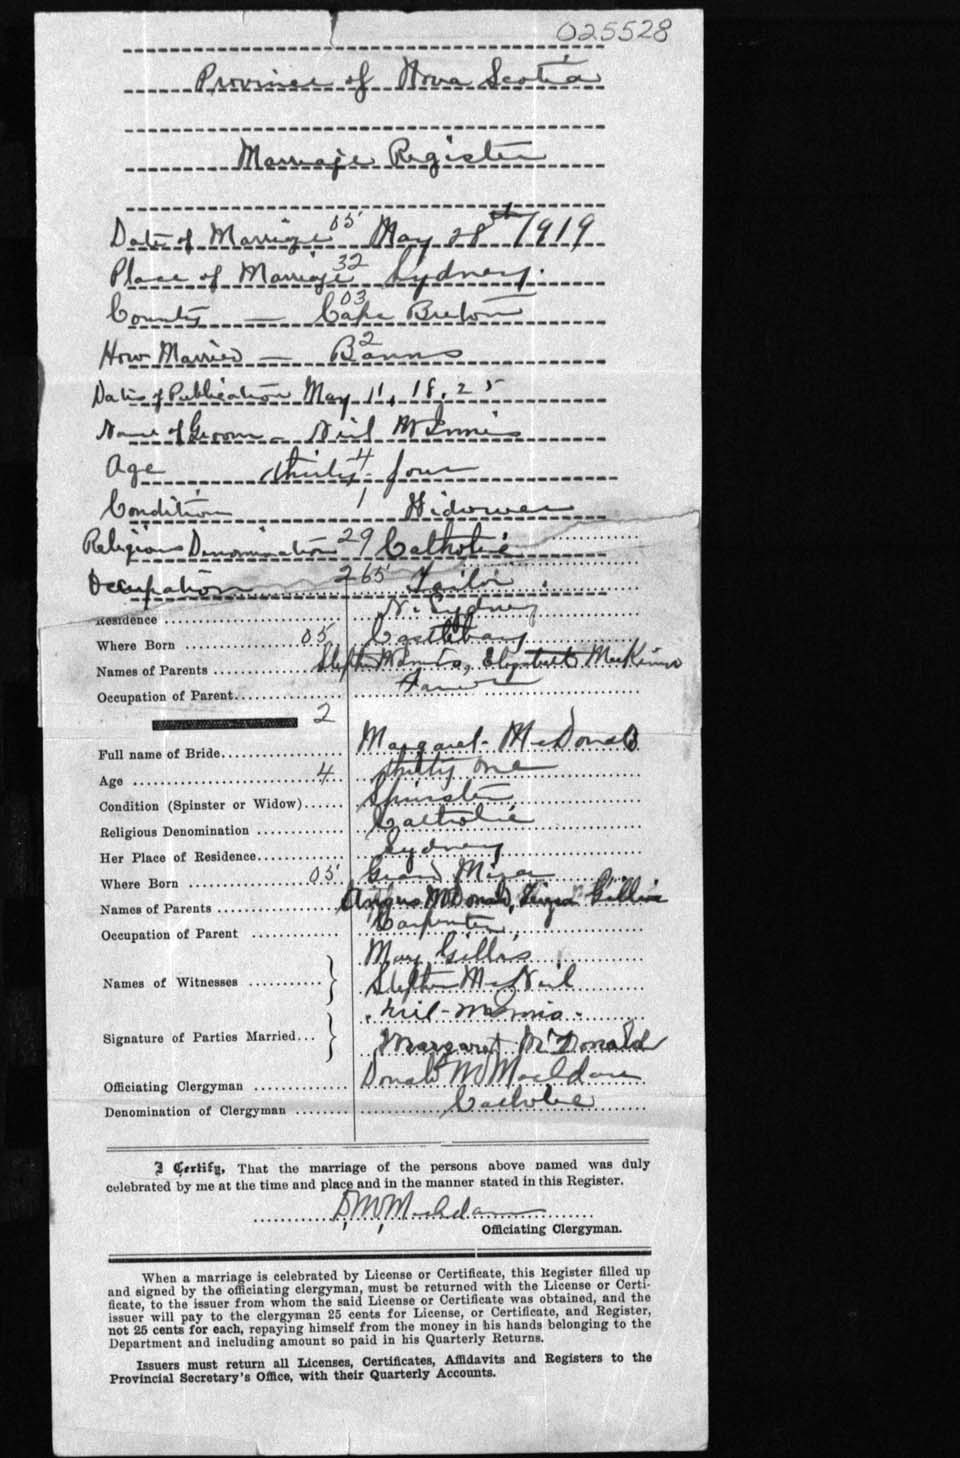 025528
Province of Nova Scotia
Marriage Register
Date of Marriage 05 May 28th 1919
Place of Marriage 32 Sydney.
County — 03 Cape Breton
How Married — 2 Banns
Dates of Publication May 11, 18, 25
Name of Groom - Neil McInnis
Age thirty 4 four
Condition 1 Widower
Religious Denomination 29 Catholic
Occupation 265 Tailor
Residence N. Sydney
Where Born 05 Castlebay
Names of Parents Stephen McInnis, Elizabeth MacKinnon
Occupation of Parent Farmer
2
Full name of Bride Margaret McDonald
Age 4 thirty one
Condition (Spinster or Widow) Spinster
Religious Denomination Catholic
Her Place of Residence Sydney
Where Born 05 Grand Mira
Names of Parents Angus McDonald, Gillis
Occupation of Parent Carpenter
Names of Witnesses Mary Gillis
Stephen McNeil
Signature of Parties Married Neil McInnis
Margaret McDonald
Officiating Clergyman Donald M
Denomination of Clergyman Catholic
I Certify, That the marriage of the persons above named was duly
celebrated by me at the time and place and in the manner stated in this Register.
D. M.
Officiating Clergyman.
When a marriage is celebrated by License or Certificate, this Register filled up
and signed by the officiating clergyman, must be returned with the License or Certi-
ficate, to the issuer from whom the said License or Certificate was obtained, and the
issuer will pay to the clergyman 25 cents for License, or Certificate, and Register,
not 25 cents for each, repaying himself from the money in his hands belonging to the
Department and including amount so paid in his Quarterly Returns.
Issuers must return all Licenses, Certificates, Affidavits and Registers to the
Provincial Secretary's Office, with their Quarterly Accounts.